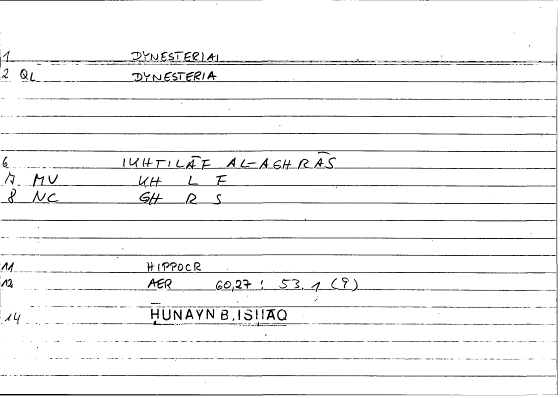 1 DYNESTERIAI
2 QL DYNESTERIA
6 IKHTILĀF AL-AGHRĀS
7 MV KH L F
8 NC GH R S
11 HIPPOCR
12 AER 60,27 : 53.1 (9)
14 ḤUNAYN B.ISḤĀQ